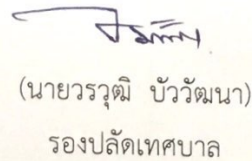 (นายวรวุฒิ บัววัฒนา)
รองปลัดเทศบาล